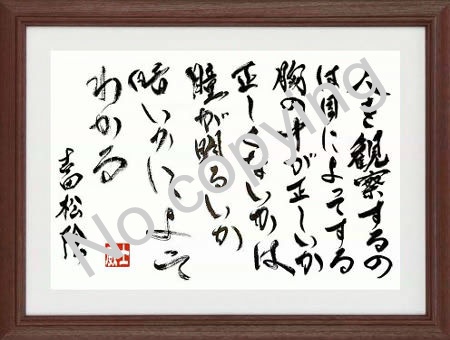 人を観察するの
は目によってする
胸の中が正しいか
正しくないかは
瞳が明るいか
暗いかによって
わかる
吉田松陰
No copying